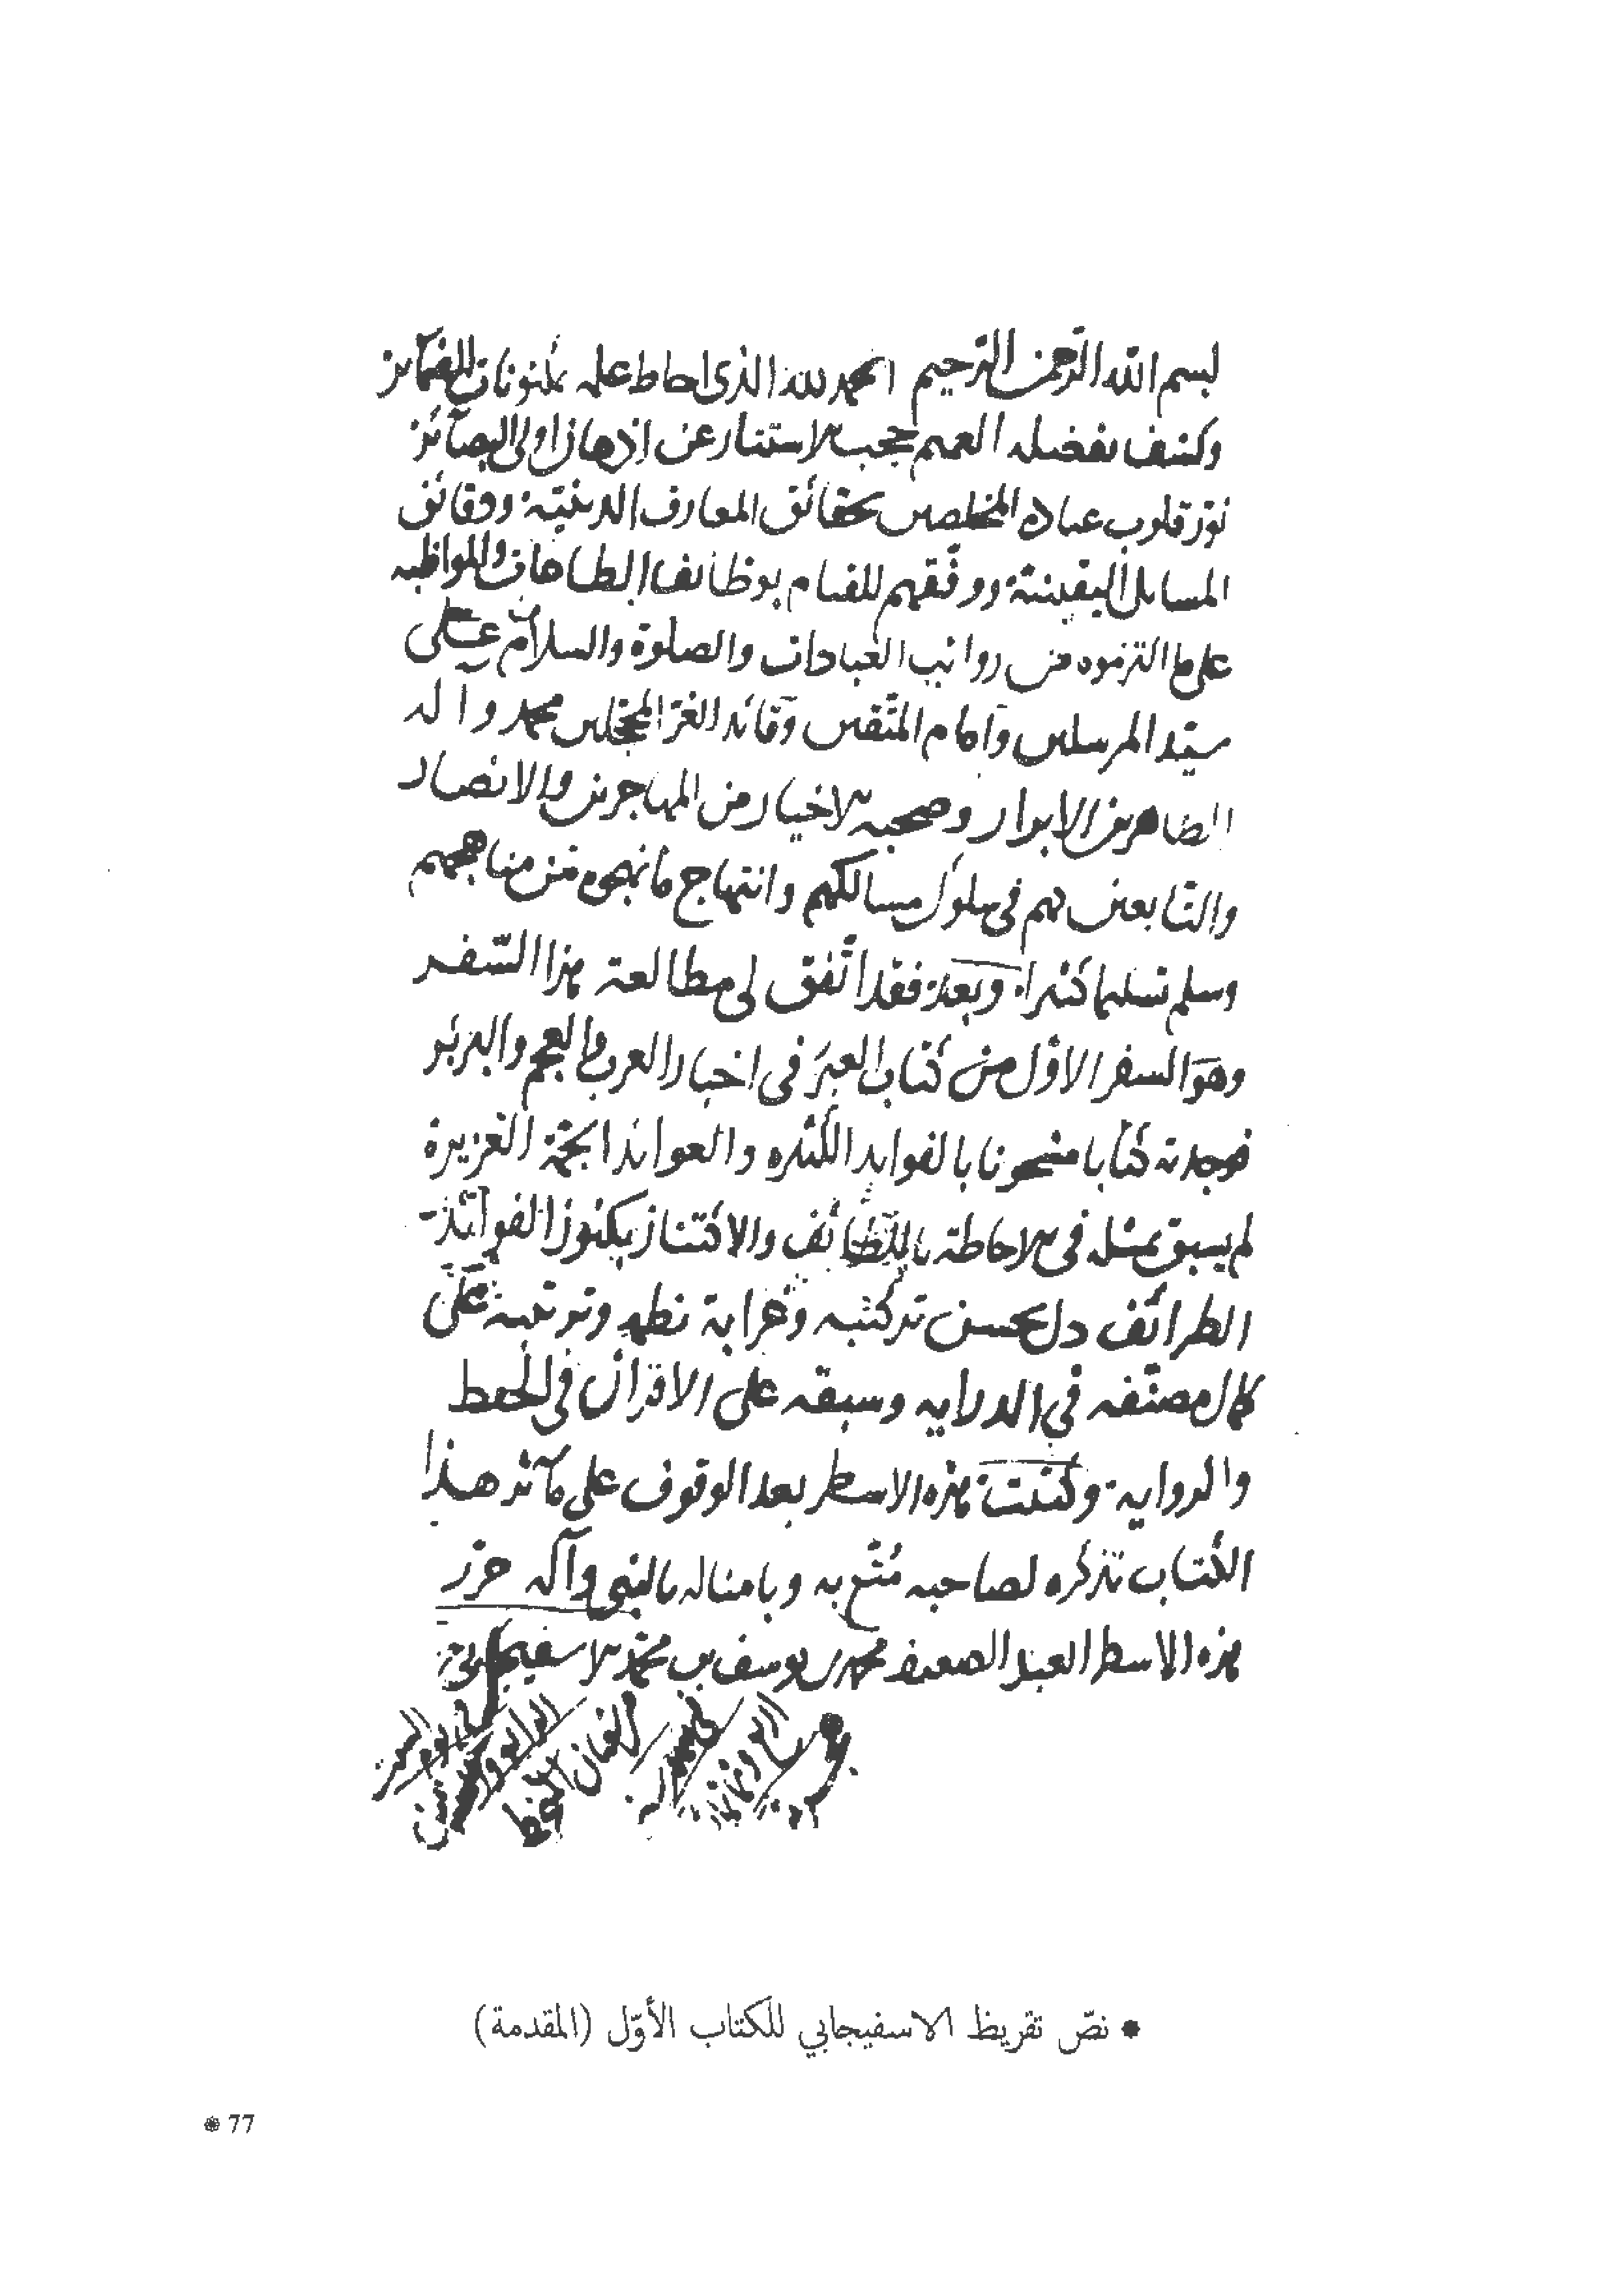 بسم الله الرّحمن الرّحيم الحمد لله الذى احاط علمه بمكنونات الضمآئر
وكشف بفضله العميم حجب الاستتار عن اذهان اولى البصآئر
نوّر قلوب عباده المخلصين بحقائق المعارف الدينيّة ودقائق
المسايل اليقينيّة ووفّقهم للقيام بوظائف الطاعات والمواظبه
على ما التزموه من رواتب العبادات والصلوة والسلام على
سيّد المرسلين وامام المتّقين وقائد الغرّ المحجّلين محمد وآله
الطاهرين الابرار وصحبه الاخيار من المهاجرين والانصار
والتّابعين لهم فى سلوك مسالكهم وانتهاج ما نهجوه من مناهجهم
وسلم تسليما كثيرا وبعد فقد اتّفق لى مطالعة هذا السّفر
وهو السفر الاوّل من كتاب العبَر فى اخبار العرب والعجم والبربر
فوجدته كتابا مشحونا بالفوايد الكثيره والعوائد الجمّة الغزيرة
لم يسبق بمثله فى الاحاطة باللّطائف والاكتناز بكنوز الفوائد
الطرائف دل بحسن تركيبه وغرابة نظمه وترتيبه على
كمال مصنّفه فى الدرايه وسبقه على الاقران فى الحفظ
والرواية وكتبت هذه الاسطر بعد الوقوف على مآثر هذا
الكتاب تذكره لصاحبه مُتّع به وبامثاله بالنبى وآله حرّر
هذه الاسطر العبد الضعيف محمد بن يوسف بن محمّد الاسفيجابىّ
● نصّ تقريظ الاسفيجابي للكتاب الأوّل (المقدمة)
77